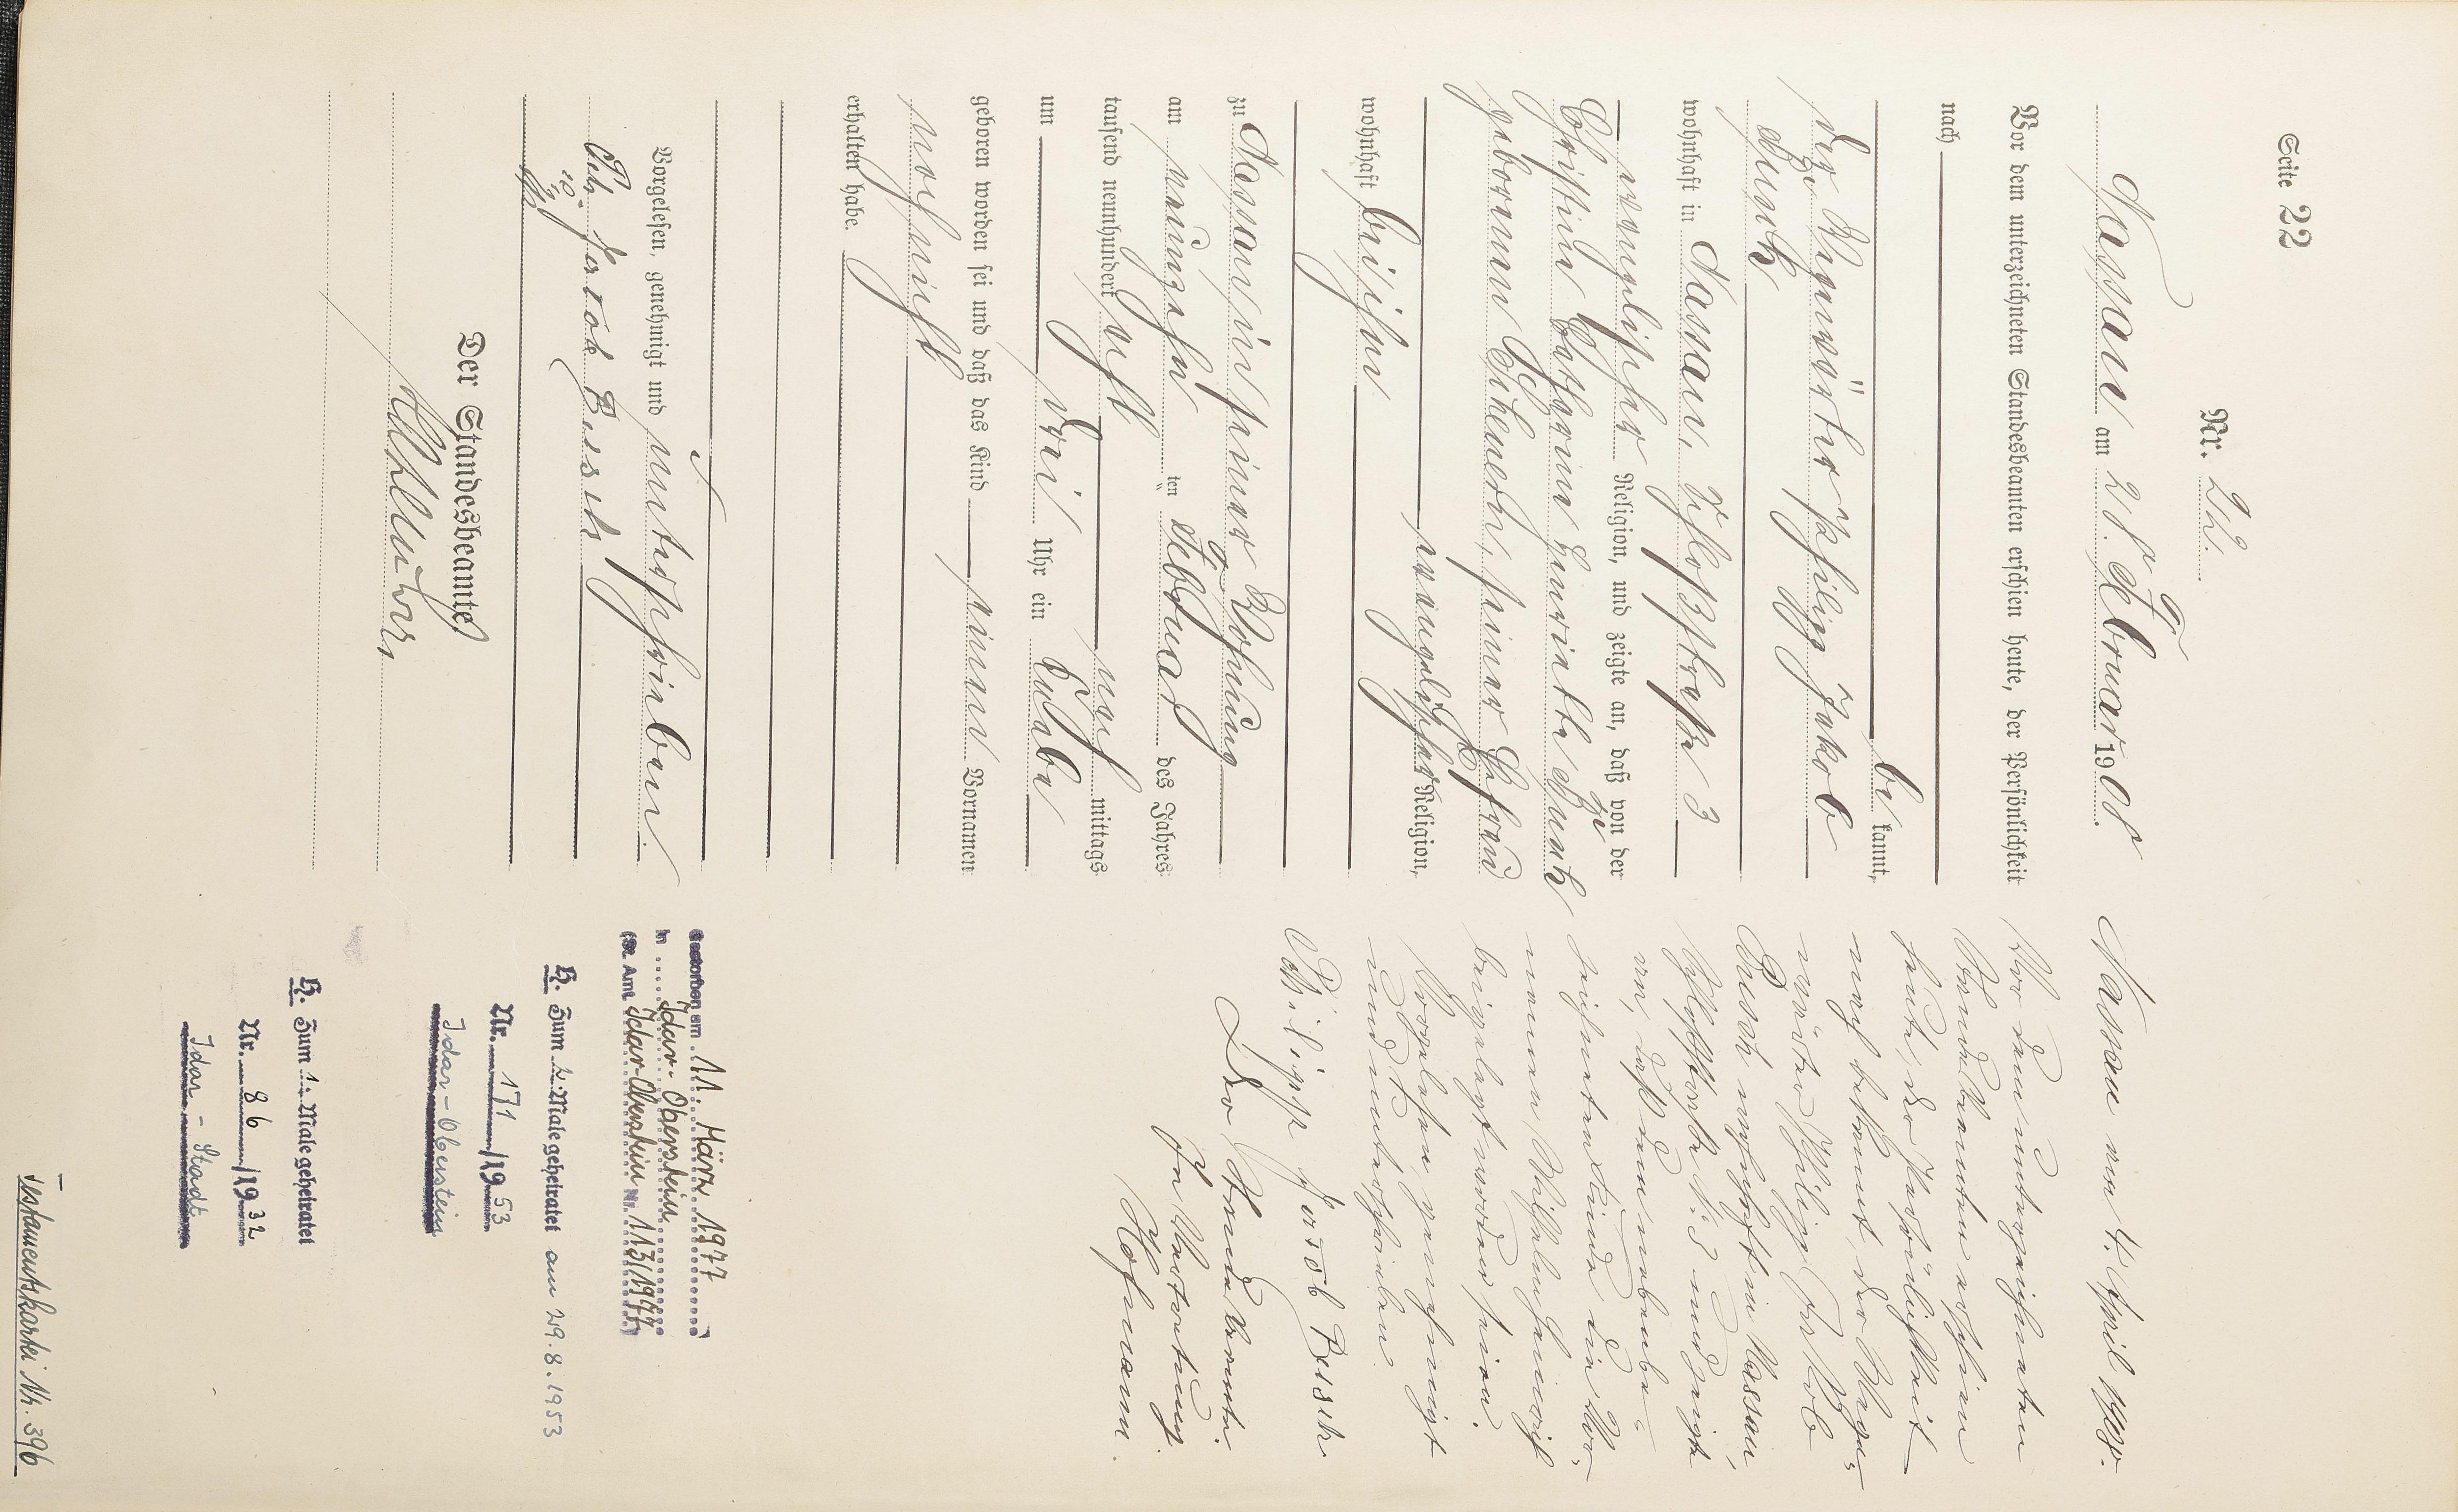 Seite 22
Nr. 22.
Nassau am 28. Februar 1908.
Vor dem unterzeichneten Standesbeamten erschien heute, der Persönlichkeit
nach
be kannt,
der Wegewärter Philipp Jakob
Busch
wohnhaft in Nassau, Schloßstraße 3
evangelischer Religion, und zeigte an, daß von der
Christine Catharine Henriette Busch
geborenen, seiner Ehefrau
evangelischer Religion,
wohnhaft bei ihm
zu Nassau in seiner Wohnung
am neunzehn ten Februar des Jahres
tausend neunhundert acht nach mittags
um drei Uhr ein Knabe
geboren worden sei und daß das Kind einen Vornamen
noch nicht
erhalten habe.
Vorgelesen, genehmigt und unterschrieben.
Jakob Busch
Der Standesbeamte
Nassau am 4. April 1908.
Vor dem unterzeichneten
Standesbeamten erschien
heute, der Persönlichkeit
nach bekannt, der Wege-
wärter Philipp Jakob
Busch wohnhaft in Nassau,
Schloßstraße No 3 und zeigte
an, daß dem nebenbe-
zeichneten Kinde die Vor-
namen Wilhelm Heinrich
beigelegt worden seien.
Vorgelesen, genehmigt
und unterschrieben.
Philipp Jakob Busch
Der Standesbeamte.
In Vertretung.
Hofmann.
Gestorben am 11. März 1977
in Idar-Oberstein
(St. Amt Idar-Oberstein Nr. 113/1977)
H. Zum 2. Male geheiratet am 29.8.1953
Nr. 171/1953
Idar-Oberstein
H. Zum 1. Male geheiratet
Nr. 86/1932
Idar - Stadt
Testamentskartei Nr. 396